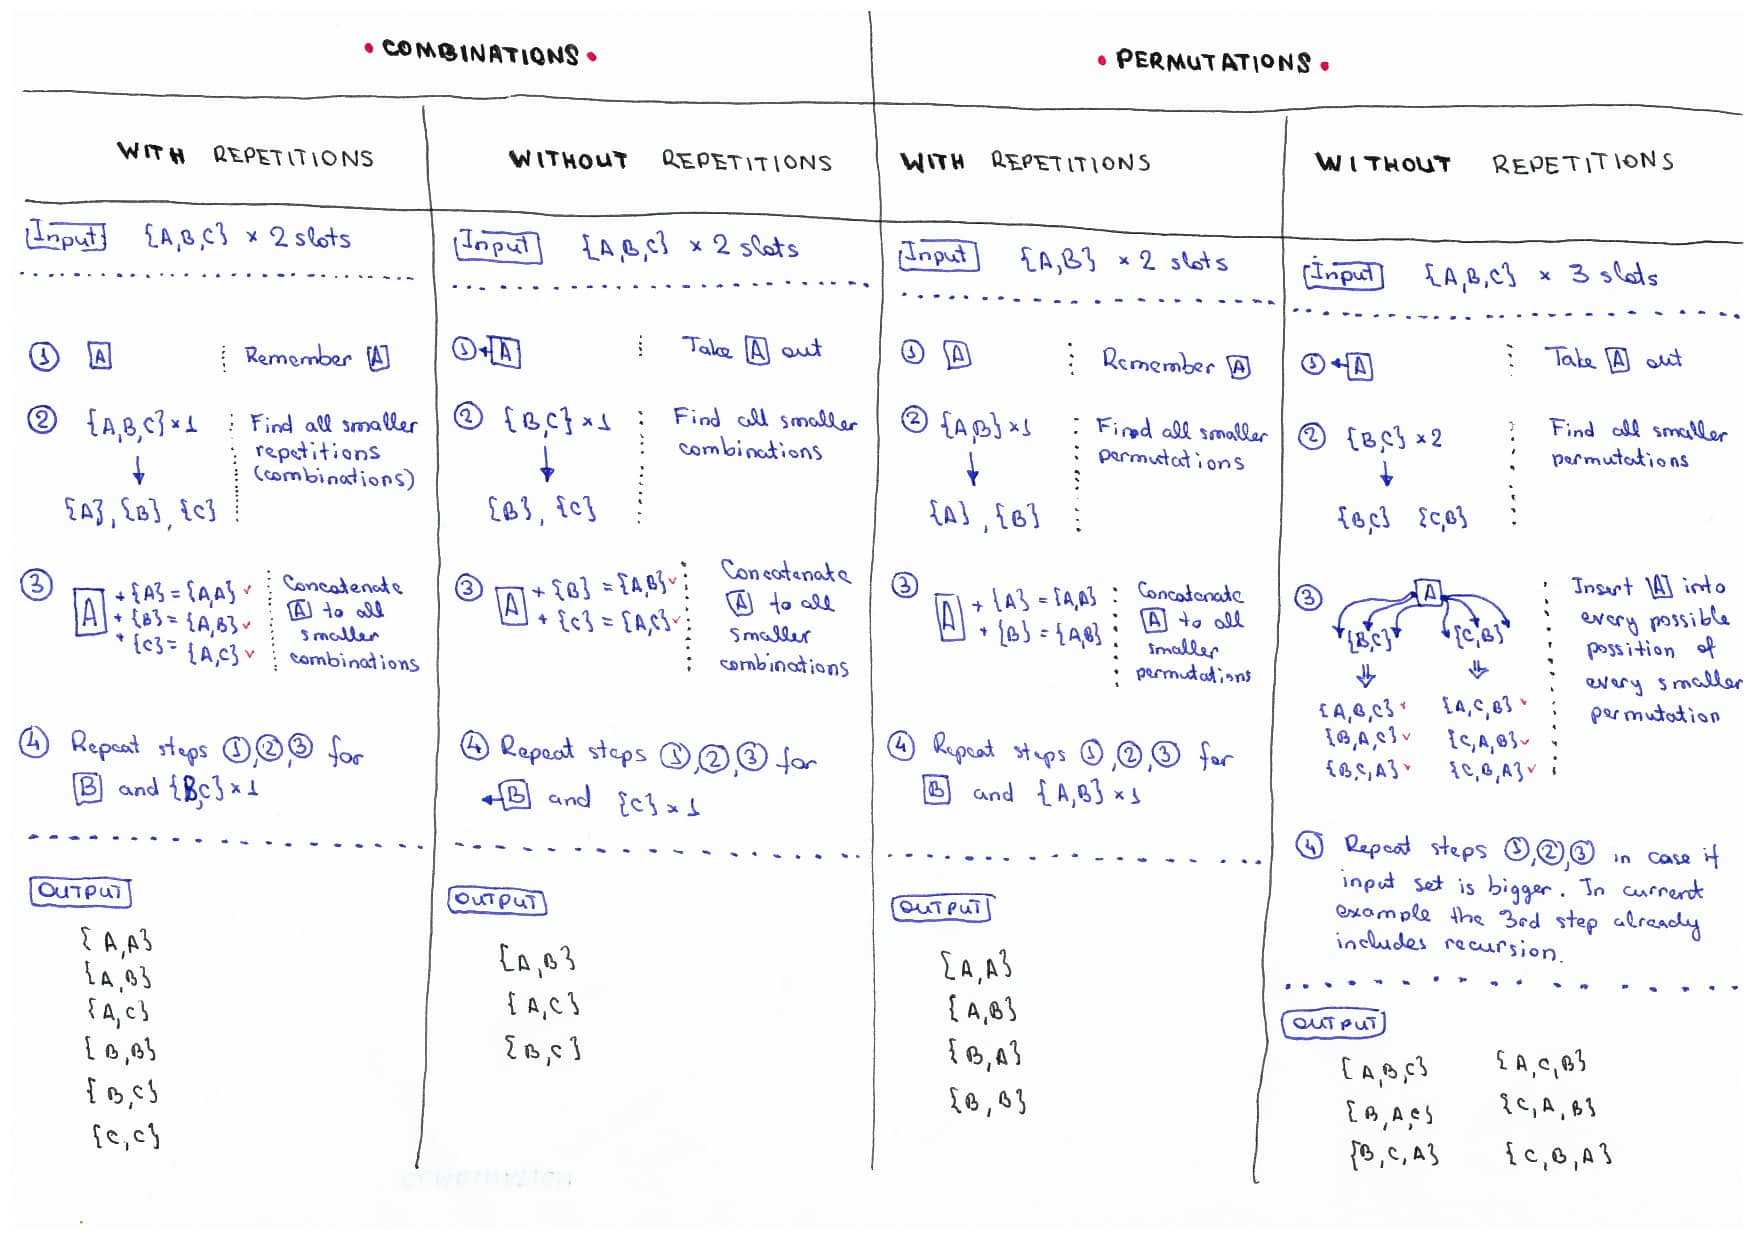 • COMBINATIONS •
WITH REPETITIONS
[Input] {A,B,C} × 2 slots
① [A] Remember [A]
② {A,B,C} × 1 Find all smaller
repetitions
(combinations)
↓
{A}, {B}, {C}
③ [A] + {A} = {A,A} ✓ Concatenate
+ {B} = {A,B} ✓ [A] to all
+ {C} = {A,C} ✓ smaller
combinations
④ Repeat steps ①,②,③ for
[B] and {B,C} × 1
OUTPUT
{A,A}
{A,B}
{A,C}
{B,B}
{B,C}
{C,C}
WITHOUT REPETITIONS
[Input] {A,B,C} × 2 slots
① ←[A] Take [A] out
② {B,C} × 1 Find all smaller
combinations
↓
{B}, {C}
③ [A] + {B} = {A,B} ✓ Concatenate
+ {C} = {A,C} ✓ [A] to all
smaller
combinations
④ Repeat steps ①,②,③ for
←[B] and {C} × 1
OUTPUT
{A,B}
{A,C}
{B,C}
• PERMUTATIONS •
WITH REPETITIONS
[Input] {A,B} × 2 slots
① [A] Remember [A]
② {A,B} × 1 Find all smaller
permutations
↓
{A}, {B}
③ [A] + {A} = {A,A} Concatenate
+ {B} = {A,B} [A] to all
smaller
permutations
④ Repeat steps ①,②,③ for
[B] and {A,B} × 1
OUTPUT
{A,A}
{A,B}
{B,A}
{B,B}
WITHOUT REPETITIONS
[Input] {A,B,C} × 3 slots
① ←[A] Take [A] out
② {B,C} × 2 Find all smaller
permutations
↓
{B,C} {C,B}
③ [A] Insert [A] into
every possible
{B,C} {C,B} possition of
every smaller
permutation
{A,B,C} ✓ {A,C,B} ✓
{B,A,C} ✓ {C,A,B} ✓
{B,C,A} ✓ {C,B,A} ✓
④ Repeat steps ①,②,③ in case if
input set is bigger. In current
example the 3rd step already
includes recursion.
OUTPUT
{A,B,C} {A,C,B}
{B,A,C} {C,A,B}
{B,C,A} {C,B,A}